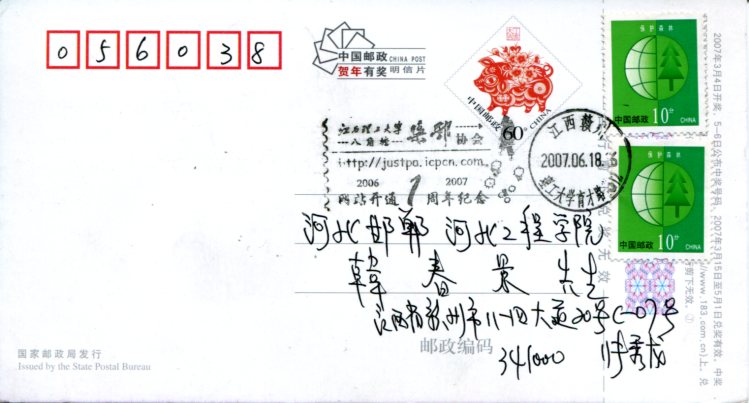 056038
中国邮政 CHINA POST
贺年有奖 明信片
中国邮政 CHINA
60分
江西理工大学 集邮协会
八角塘
http://justpa.icpcn.com
2006 1 2007
网站开通 周年纪念
江西赣州
2007.06.18.
理工大学育才
保护森林
10分
中国邮政 CHINA
保护森林
10分
中国邮政 CHINA
河北邯郸 河北工程学院
韩春景 先生
江西省赣州市11-18大道20号C-07号
341000
邮政编码
国家邮政局发行
Issued by the State Postal Bureau
2007年3月4日开奖,5-6日公布中奖号码,2007年3月15日至5月1日兑奖有效。中奖
www.183.com.cn)上。兑
剪下无效。